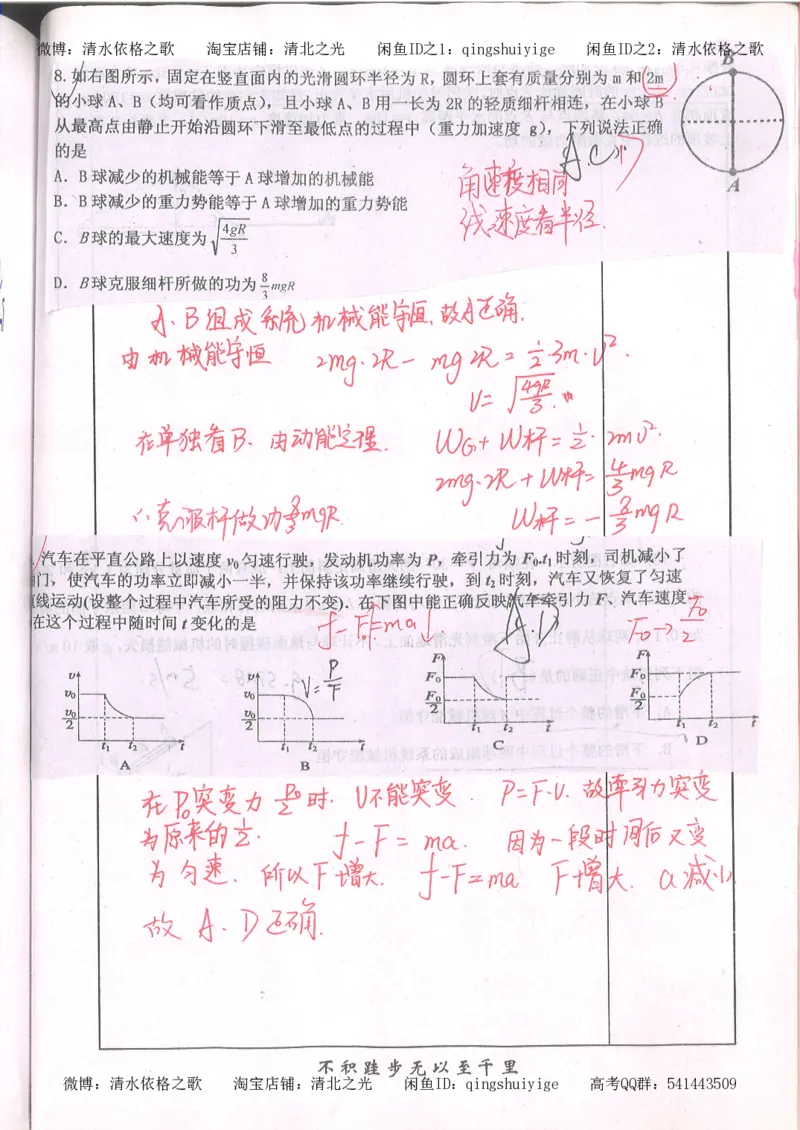 微博：清水依格之歌 淘宝店铺：清北之光 闲鱼ID之1：qingshuiyige 闲鱼ID之2：清水依格之歌
8.如右图所示，固定在竖直面内的光滑圆环半径为 R，圆环上套有质量分别为 m 和 2m
的小球 A、B（均可看作质点），且小球 A、B 用一长为 2R 的轻质细杆相连，在小球 B
从最高点由静止开始沿圆环下滑至最低点的过程中（重力加速度 g），下列说法正确
的是
A.C
B
A
A．B 球减少的机械能等于 A 球增加的机械能
B．B 球减少的重力势能等于 A 球增加的重力势能
C．B球的最大速度为 √(4gR/3)
D．B球克服细杆所做的功为 8/3 mgR
角速度相同
线速度看半径.
A、B组成系统机械能守恒.故A正确.
由机械能守恒 2mg·2R－mg2R＝1/2·3m·v².
v＝√(4gR/3).
在单独看B、由动能定理. WG＋W杆＝1/2·2mv².
2mg·2R＋W杆＝4/3mgR
∴克服杆做功8/3mgR W杆＝－8/3mgR
汽车在平直公路上以速度 v₀ 匀速行驶，发动机功率为 P，牵引力为 F₀.t₁ 时刻，司机减小了
门，使汽车的功率立即减小一半，并保持该功率继续行驶，到 t₂ 时刻，汽车又恢复了匀速
线运动(设整个过程中汽车所受的阻力不变)．在下图中能正确反映汽车牵引力 F、汽车速度
在这个过程中随时间 t 变化的是
f－F＝ma↓
A.D
F₀→F₀/2
v v₀ v₀/2 t₁ t₂ t A
v v₀ v₀/2 t₁ t₂ t B
V＝P/F
F F₀ F₀/2 t₁ t₂ t C
F F₀ F₀/2 t₁ t₂ t D
在P₀突变为P₀/2时．V不能突变．P＝F·V．故牵引力突变
为原来的1/2. f－F＝ma. 因为一段时间后又变
为匀速．所以F增大． f－F＝ma F增大．a减小
故 A、D正确.
不积跬步无以至千里
微博：清水依格之歌 淘宝店铺：清北之光 闲鱼ID：qingshuiyige 高考QQ群：541443509